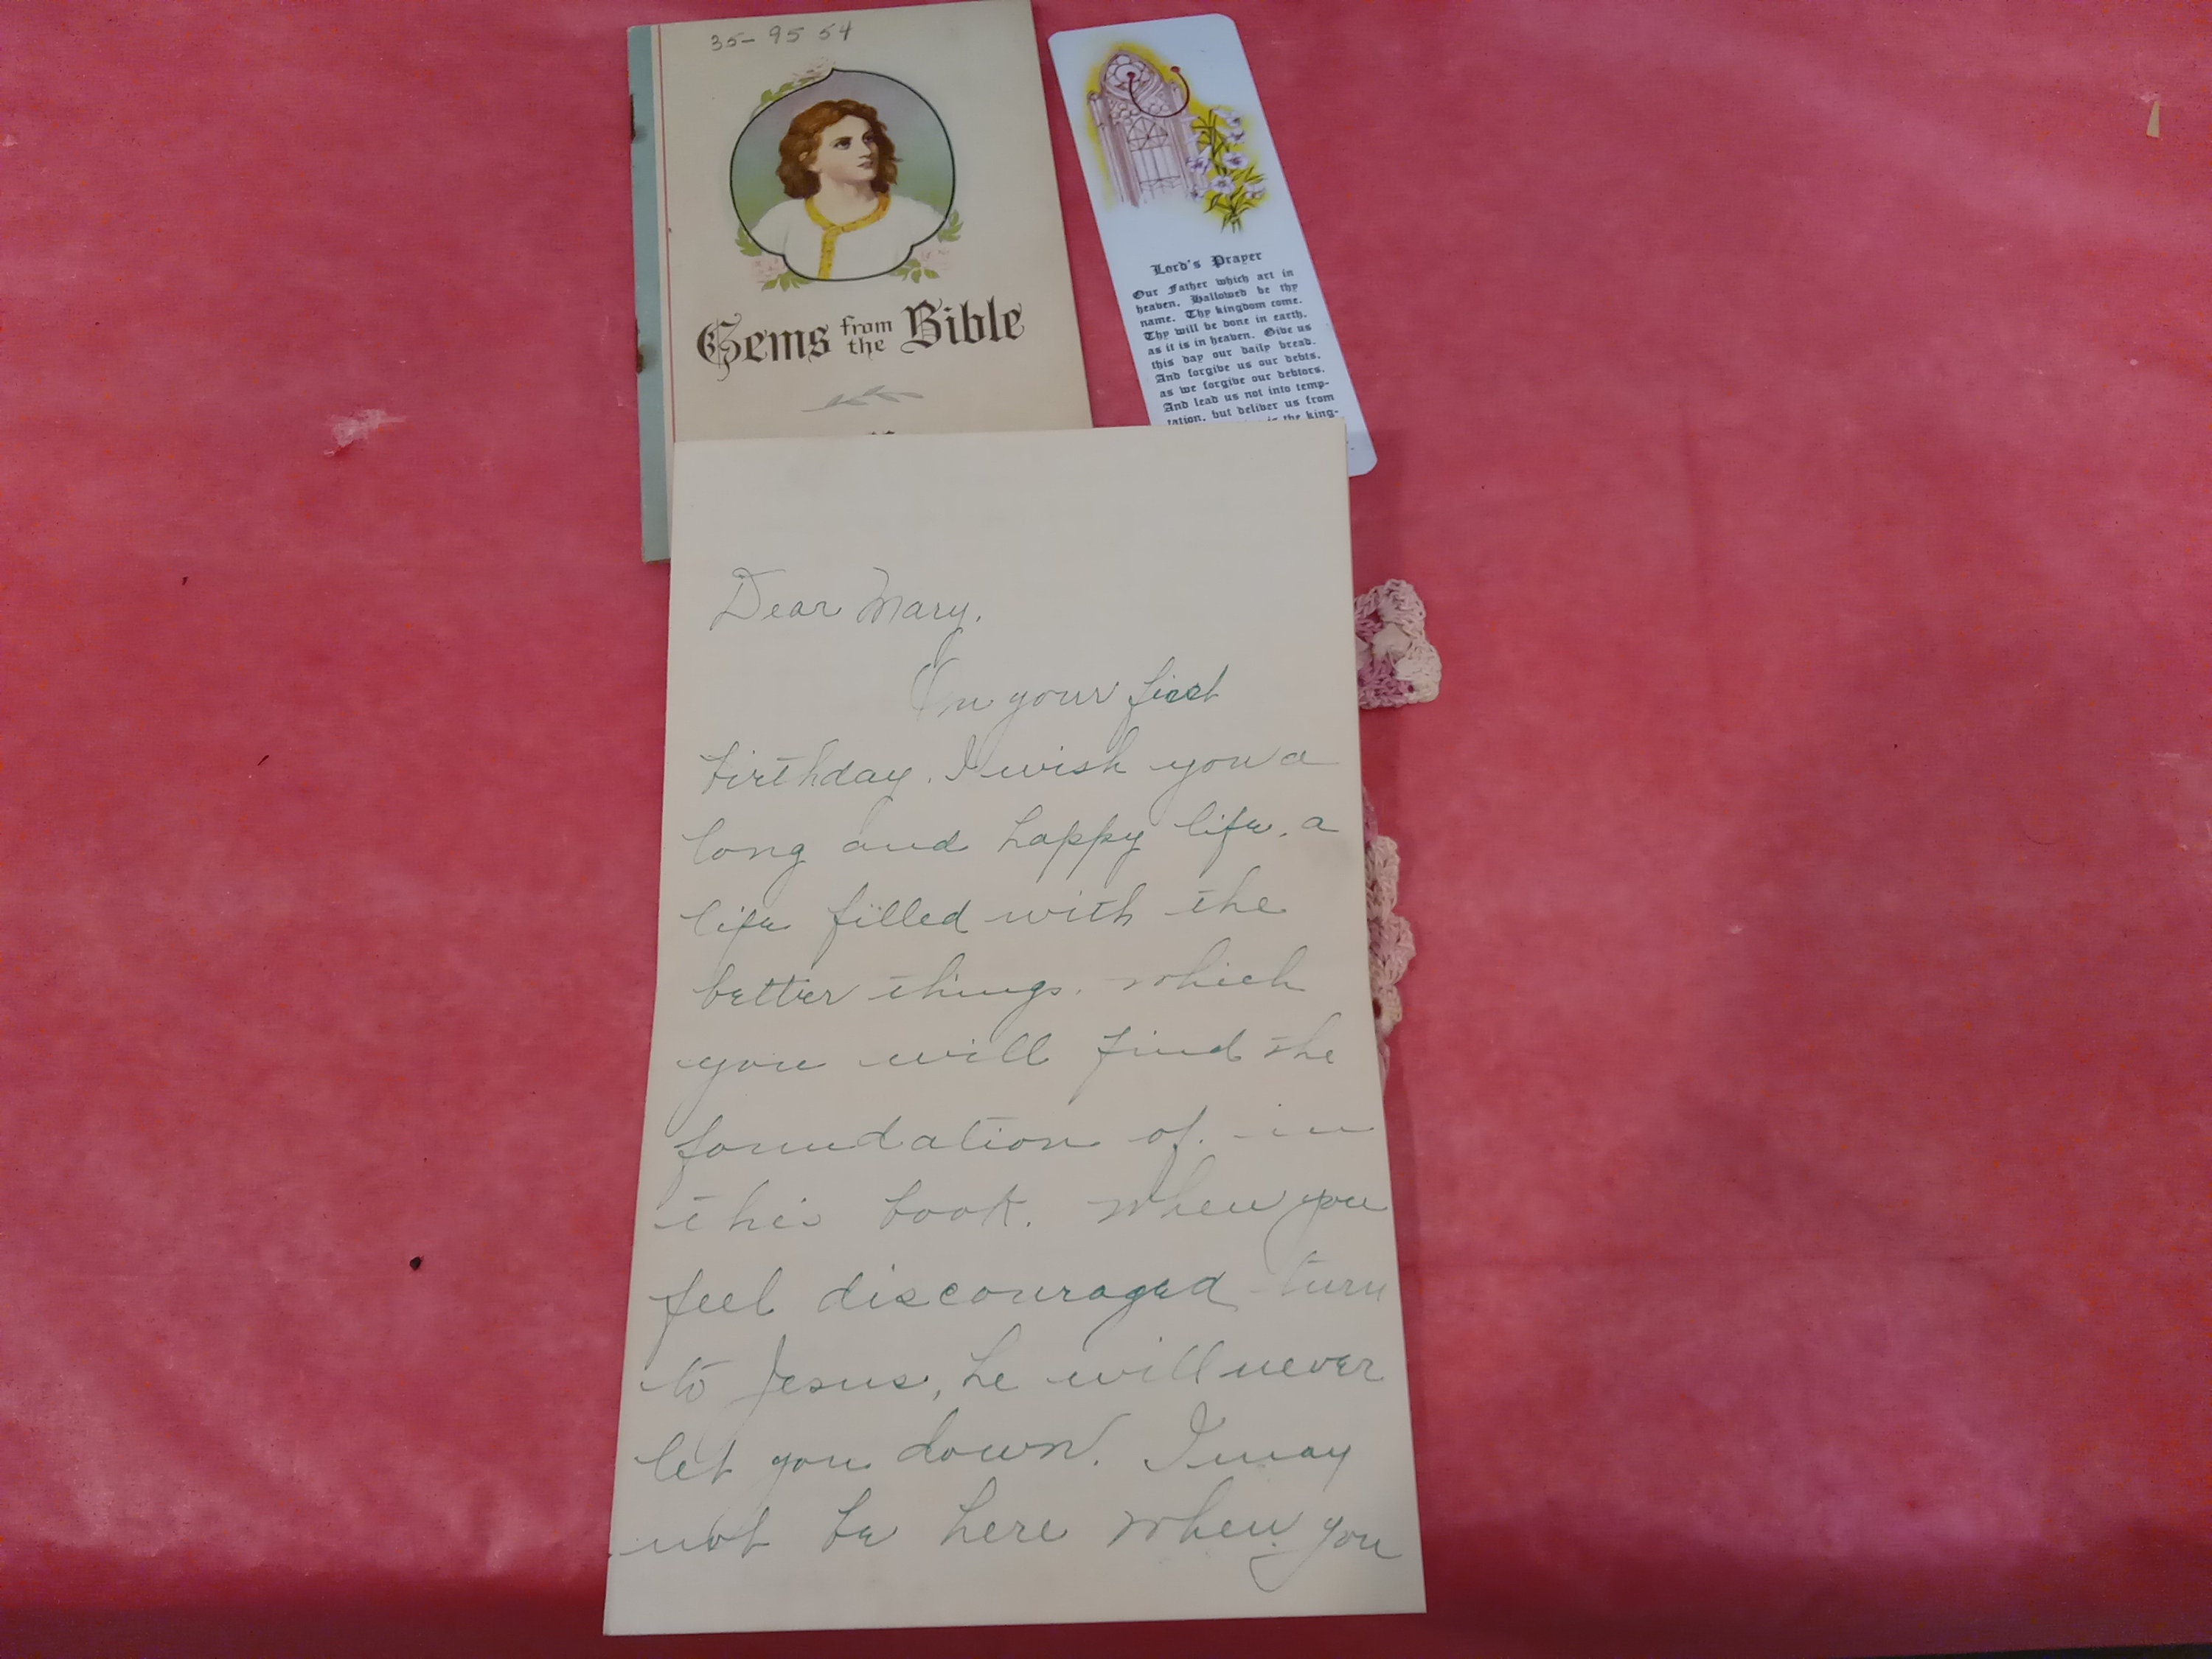 35-95 54
Gems from the Bible
Lord's Prayer
Our Father which art in
heaven, Hallowed be thy
name. Thy kingdom come.
Thy will be done in earth,
as it is in heaven. Give us
this day our daily bread.
And forgive us our debts,
as we forgive our debtors.
And lead us not into temp-
tation, but deliver us from
is the king-
Dear Mary.
On your first
birthday. I wish you a
long and happy life, a
life filled with the
better things. which
you will find the
foundation of. in
this book. When you
feel discouraged turn
to Jesus, he will never
let you down. I may
not be here when you